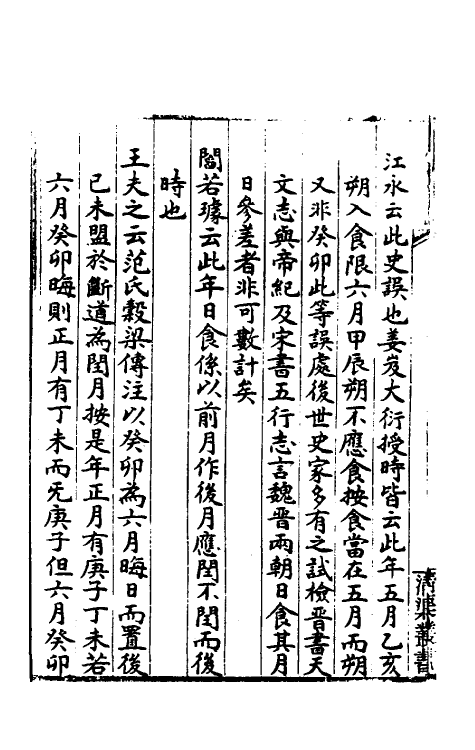 江永云此史誤也姜岌大衍授時皆云此年五月乙亥
朔入食限六月甲辰朔不應食按食當在五月而朔
又非癸卯此等誤處後世史家多有之試檢晉書天
文志與帝紀及宋書五行志言魏晉兩朝日食其月
日參差者非可數計矣
閻若璩云此年日食係以前月作後月應閏不閏而後
時也
王夫之云范氏穀梁傳注以癸卯為六月晦日而置後
己未盟於斷道為閏月按是年正月有庚子丁未若
六月癸卯晦則正月有丁未而无庚子但六月癸卯
清渠叢書